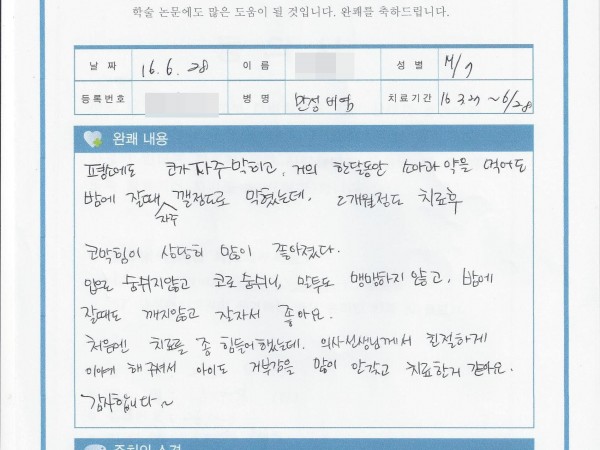 학술 논문에도 많은 도움이 될 것입니다. 완쾌를 축하드립니다.
날 짜 16. 6. 28 이 름 성 별 M/7
등록번호 병 명 만성 비염 치료기간 16 3.27 ~ 6/28
완쾌 내용
평소에도 코가 자주 막히고, 거의 한달동안 소아과 약을 먹어도
밤에 잘때 자주 깰정도로 막혔는데, 2개월정도 치료후
코막힘이 상당히 많이 좋아졌다.
입으로 숨쉬지않고 코로 숨쉬니, 말투도 맹맹하지 않고, 밤에
잘때도 깨지않고 잘자서 좋아요.
처음엔 치료를 좀 힘들어했는데. 의사선생님께서 친절하게
이야기 해 주셔서 아이도 거부감을 많이 안갖고 치료한거 같아요.
감사합니다~
주치의 소견